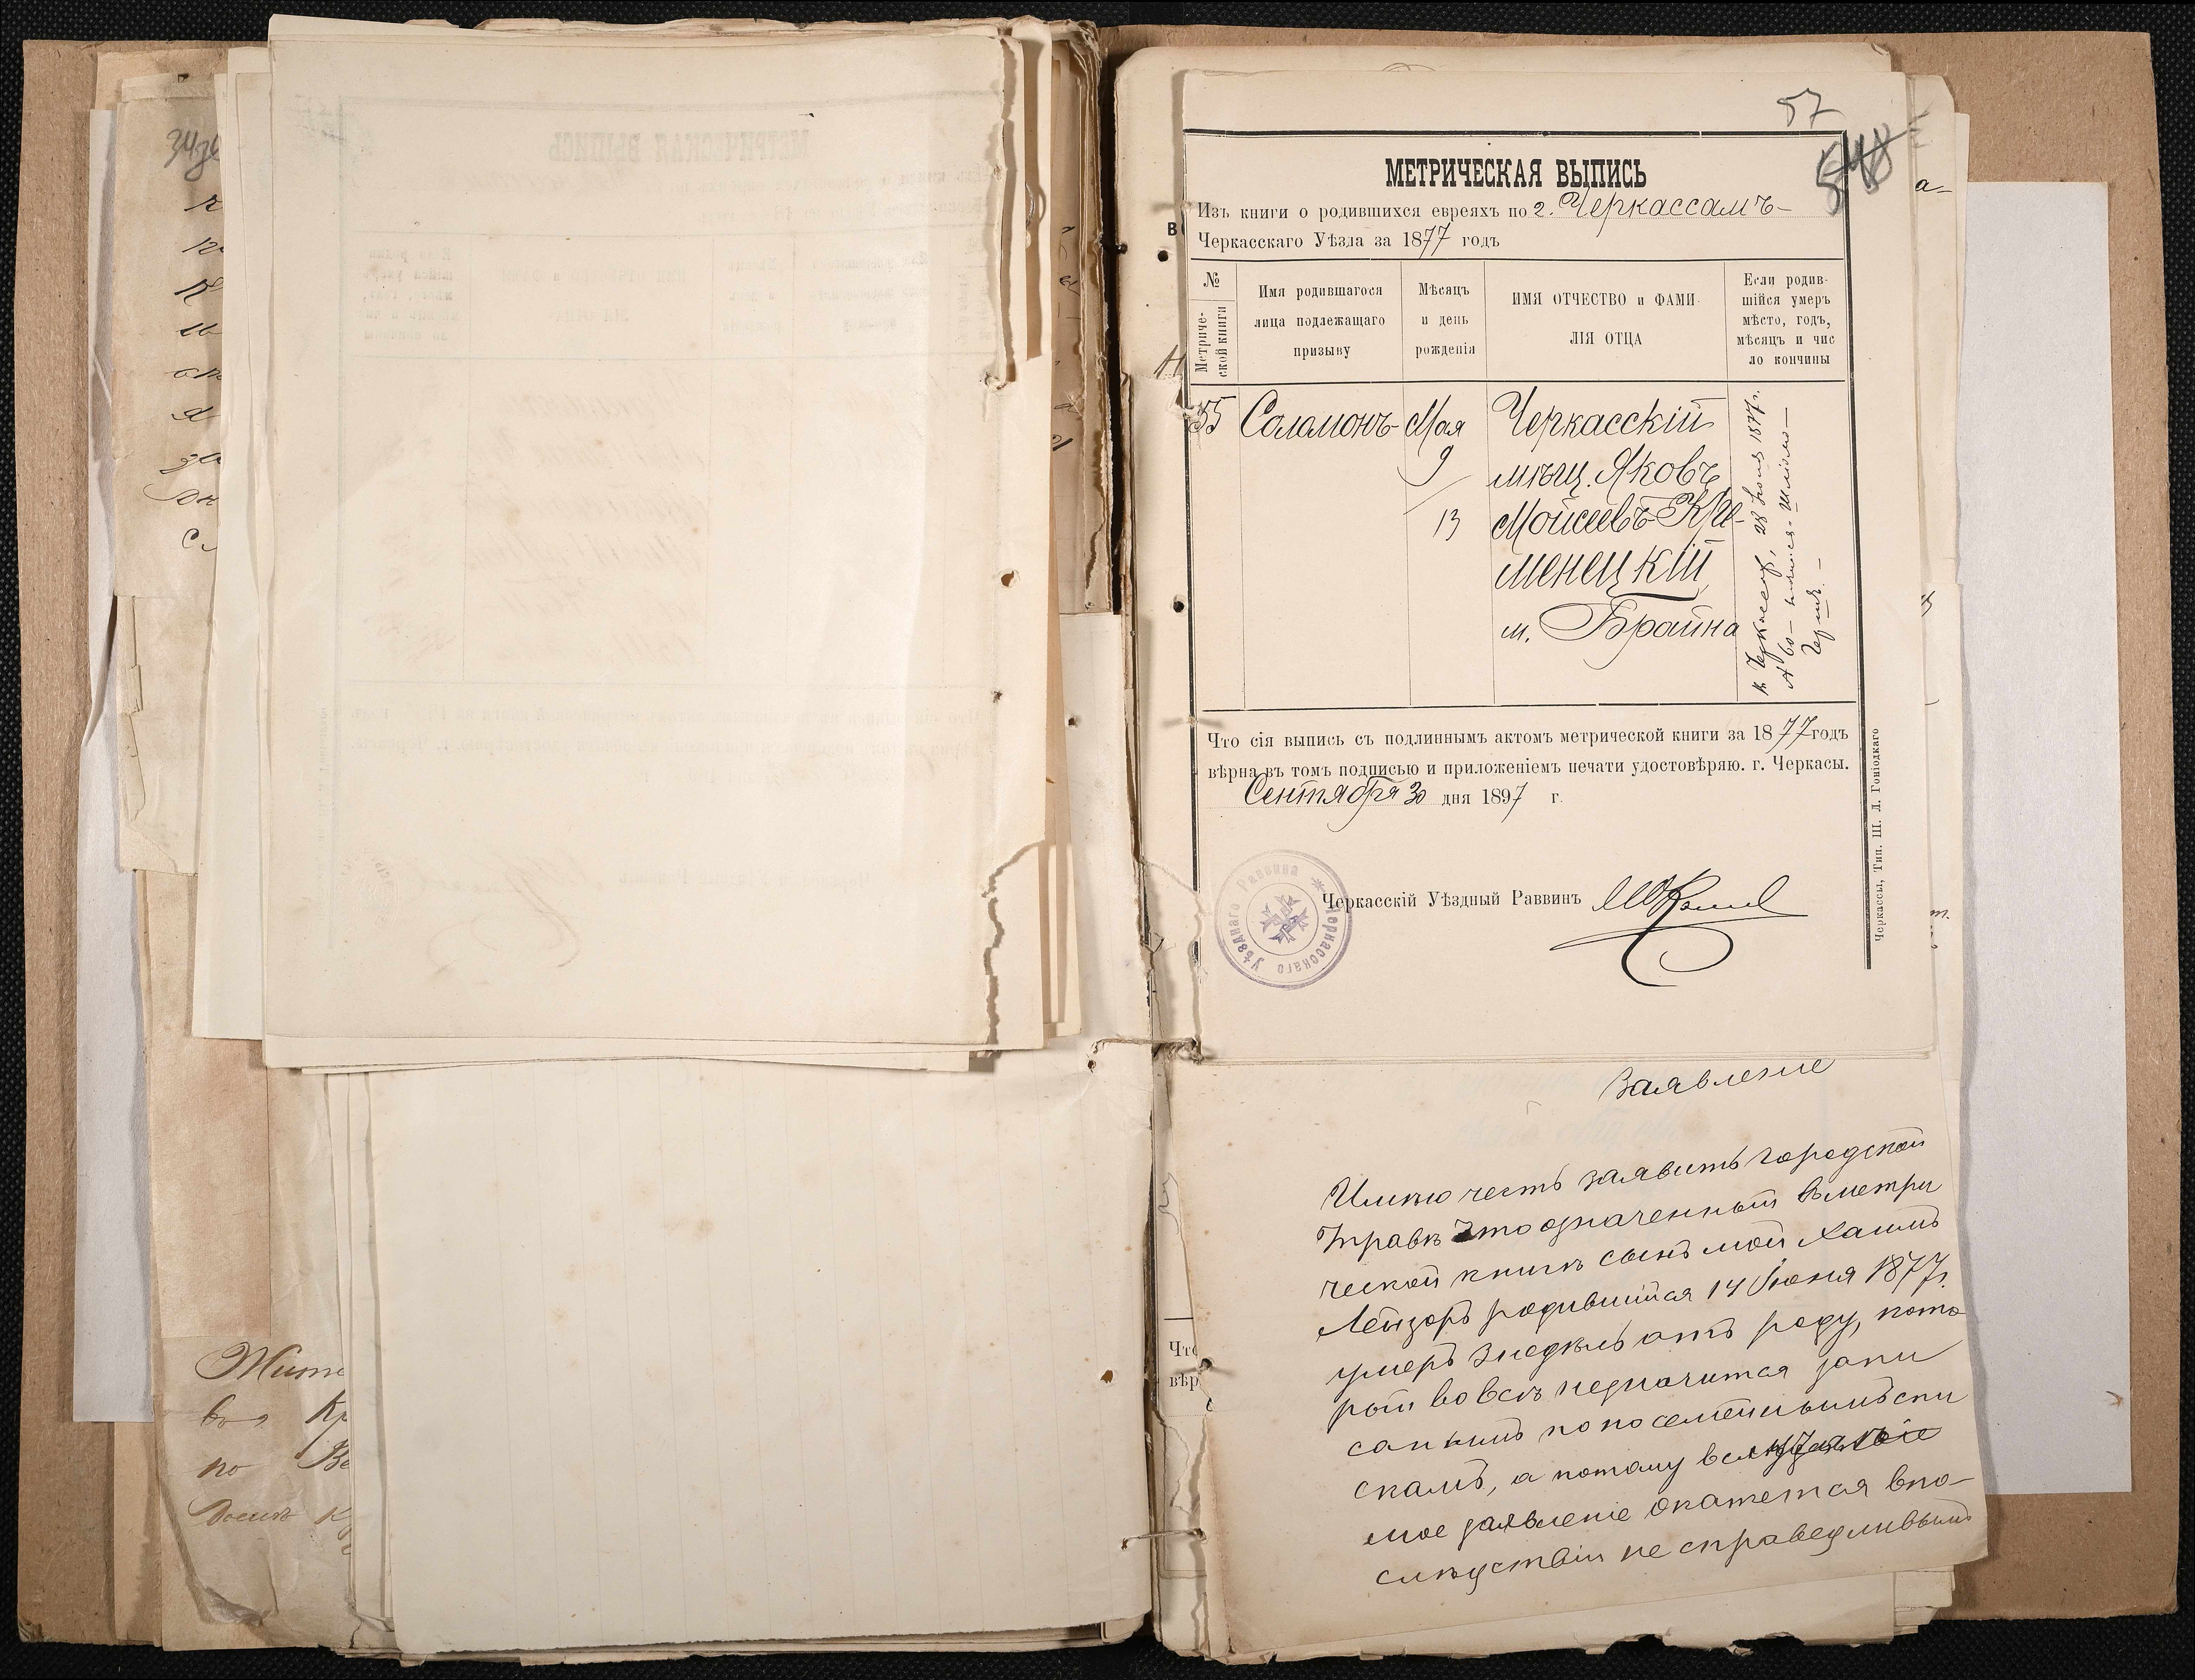 57
548
МЕТРИЧЕСКАЯ ВЫПИСЬ
Изъ книги о родившихся евреяхъ по г. Черкассамъ
Черкасскаго Уѣзда за 1877 годъ
№ Метриче-ской книги
Имя родившагося лица подлежащаго призыву
Мѣсяцъ и день рожденія
ИМЯ ОТЧЕСТВО и ФАМИ-ЛІЯ ОТЦА
Если родив-шійся умеръ мѣсто, годъ, мѣсяцъ и чис ло кончины
55 Соломонъ Мая Черкасскій
9 мѣщ. Яковъ
13 Моисеевъ Кре-
менецкій
м. Брайна
Черкассахъ, 28 1877 г.
Что сія выпись съ подлиннымъ актомъ метрической книги за 1877 годъ
вѣрна въ томъ подписью и приложеніемъ печати удостовѣряю. г. Черкасы.
Сентября 30 дня 1897 г.
Черкасскій Уѣздный Раввинъ
Черкасскаго Уѣзднаго Раввина
Черкассы, Тип. Ш. Л. Гоніодкаго
Заявление
Имѣю честь заявить городской
Управѣ что означенный въ метри
ческой книгѣ сынъ мой Хаимъ
Лейзоръ родившійся 14 Іюня 1877 г.
умеръ недѣль отъ роду, кото
рый вовсе не значится запи
саннымъ по посемейнымъ спи
скамъ, а потому если
мое заявленіе окажется впо-
слѣдствіи не справедливымъ
Что
вѣр
Жит
Кр
по